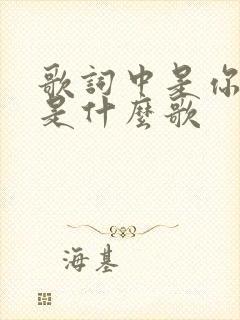 歌詞中是你
是什麼歌
海基